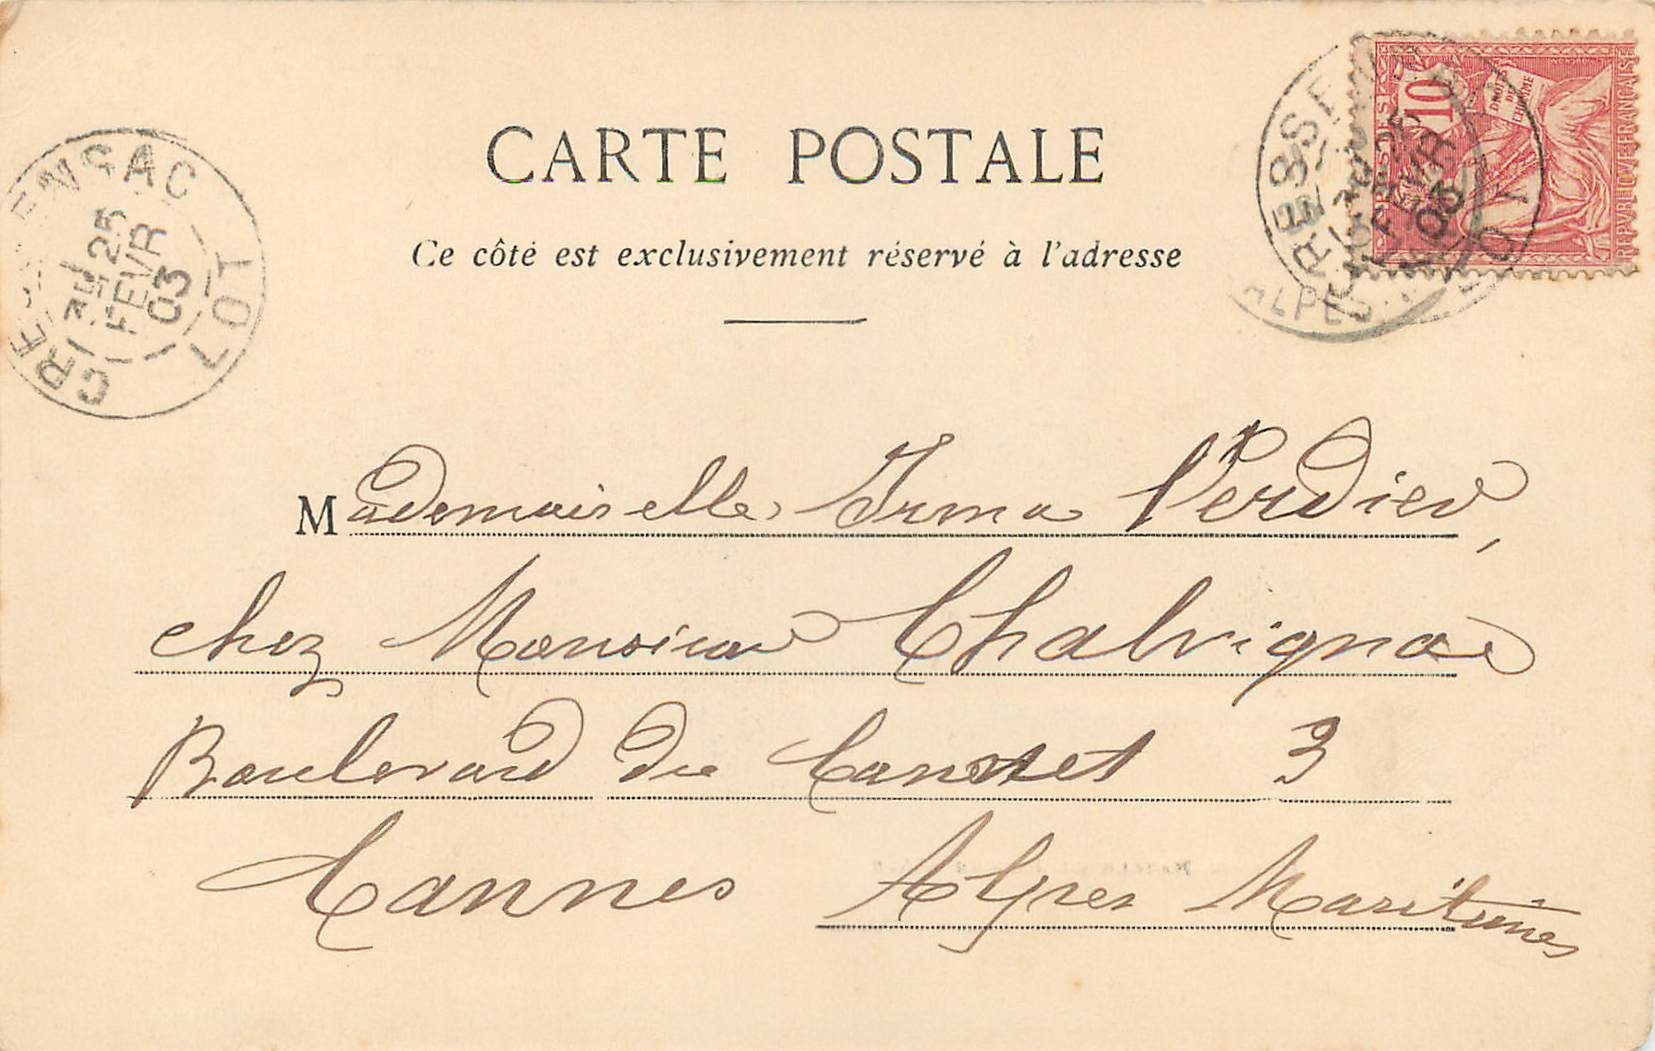 CARTE POSTALE
Ce côté est exclusivement réservé à l'adresse
CRESSENSAC
3E
25
FEVR
03
LOT
10
DROITS
DE
L'HOMME
REPUBLIQUE FRANÇAISE
POSTES
25
FEVR
03
ALPES
Mademoiselle Irma Verdier,
chez Monsieur Chalvignac
Boulevard du Cannet 3
Cannes Alpes Maritimes